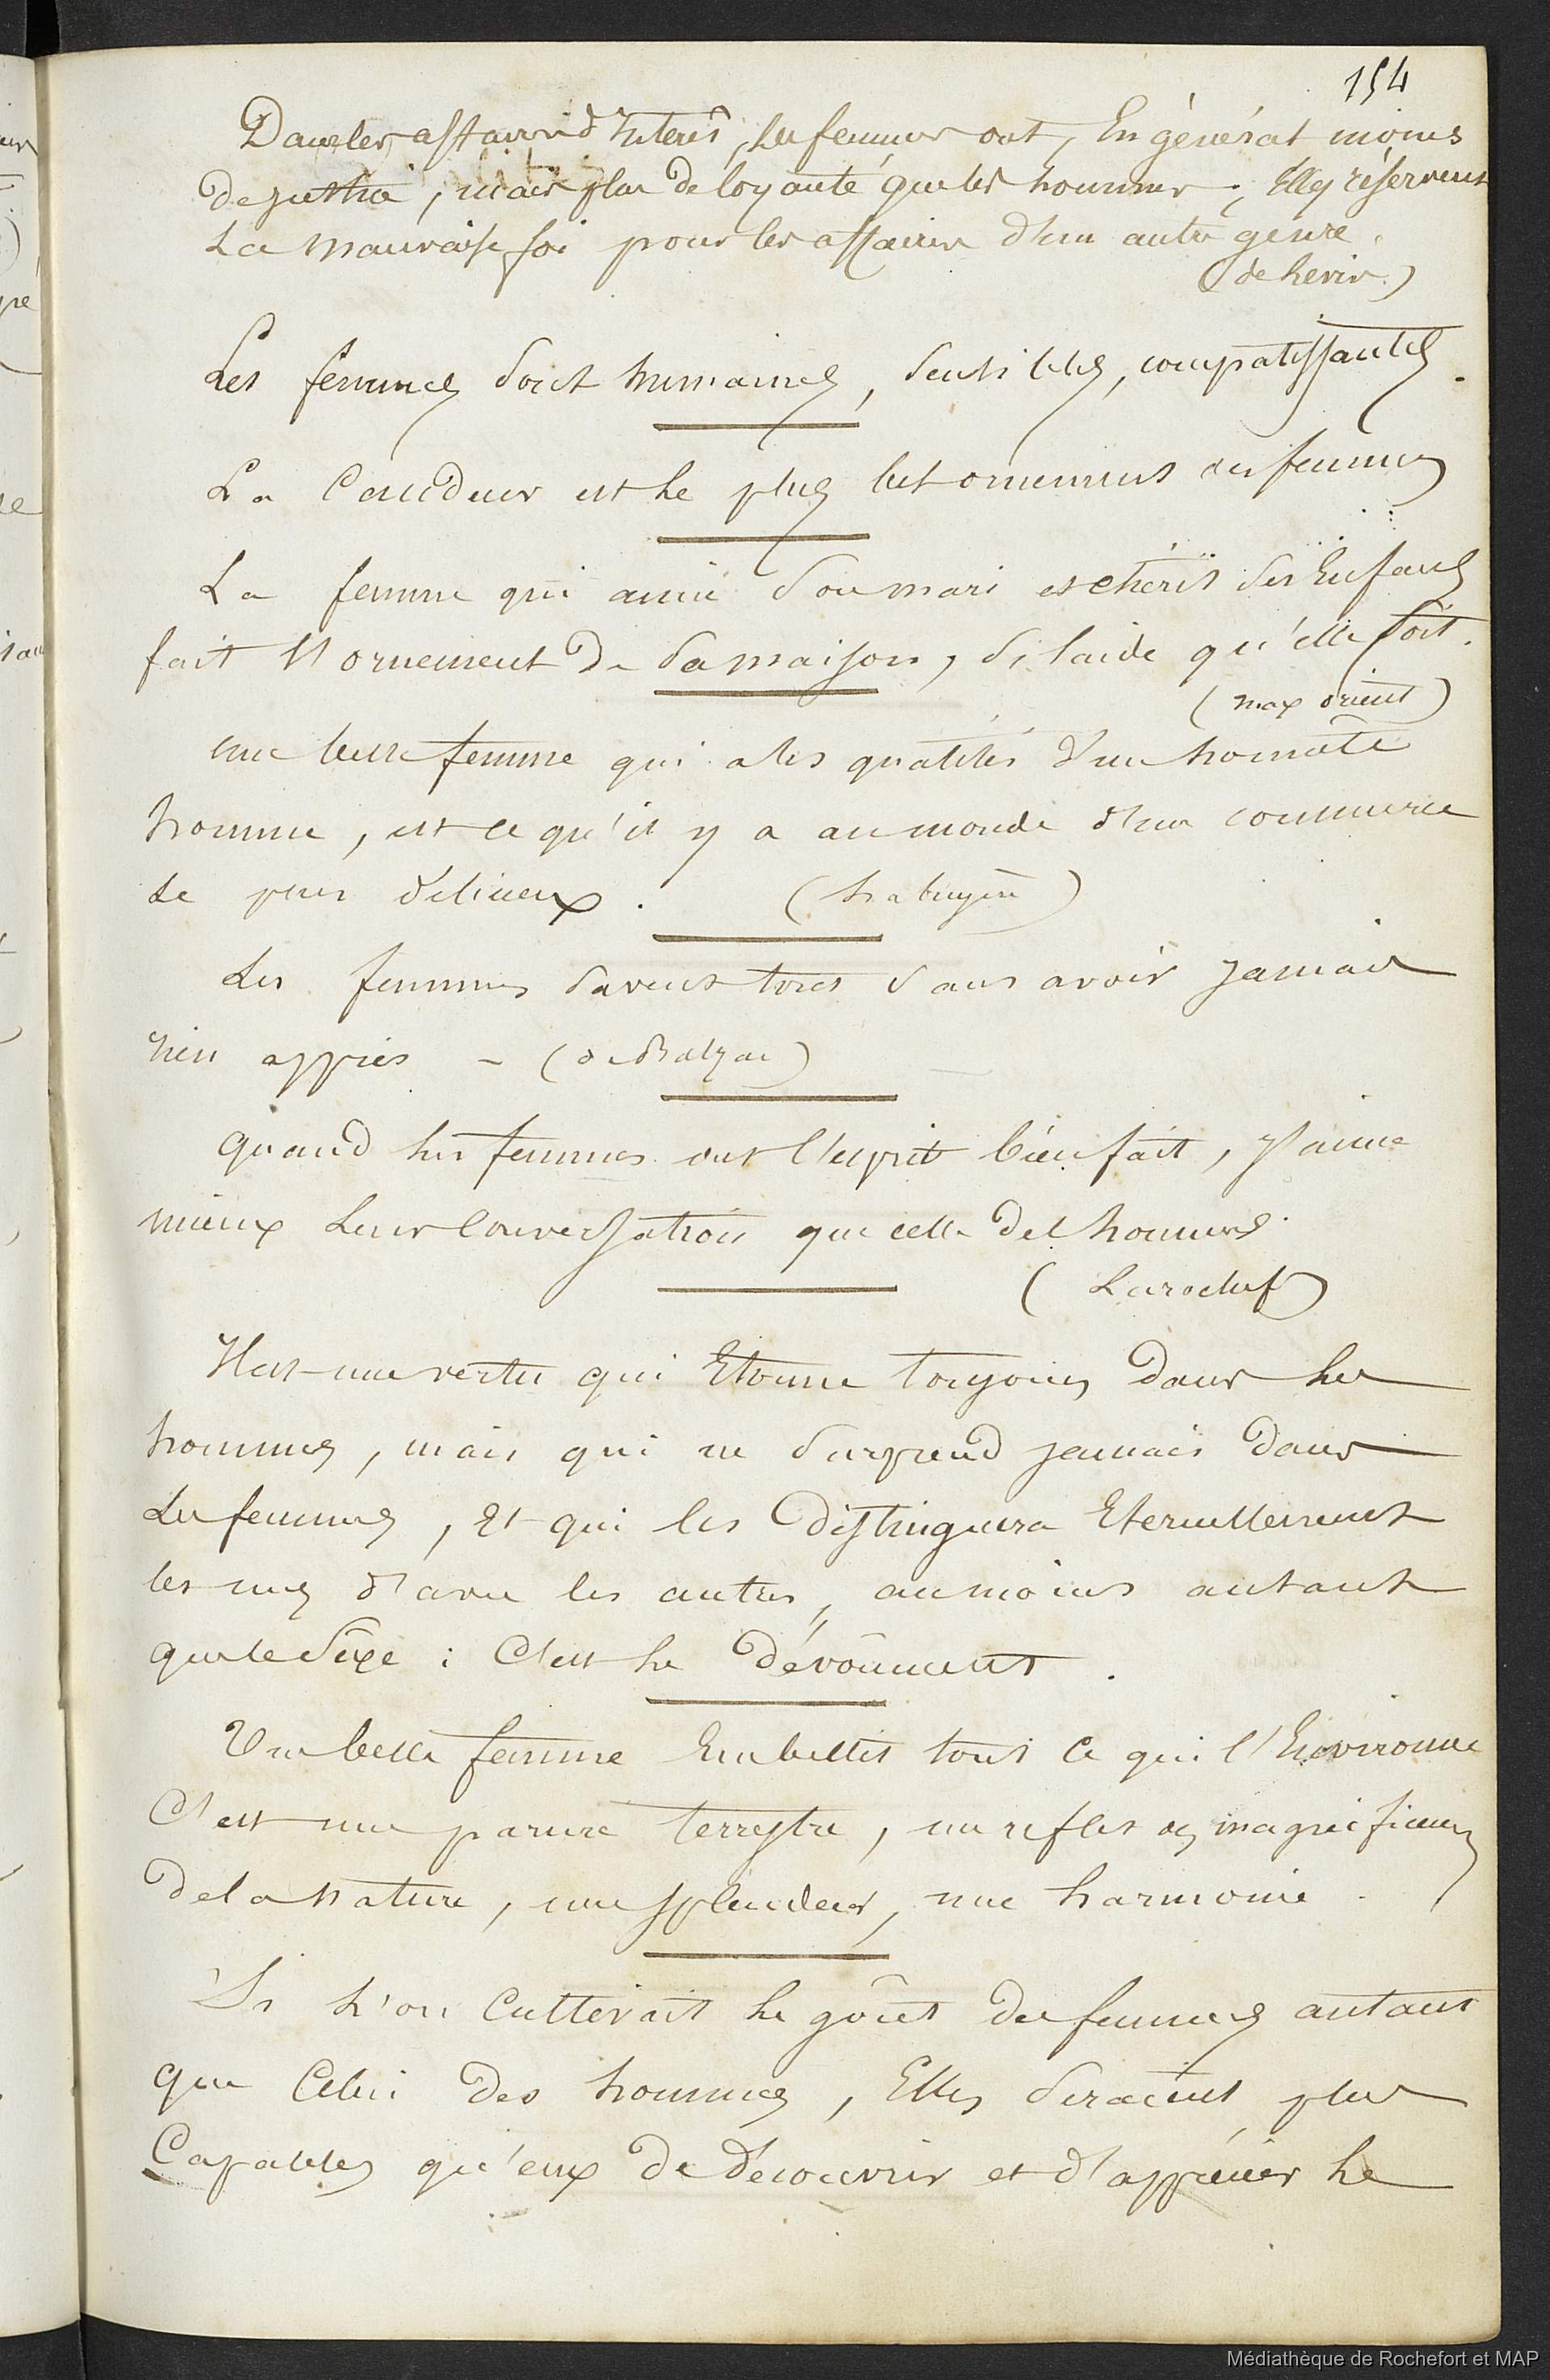 154
Dans les affaires d'Interêt, les femmes ont, En général moins
de justice, mais plus de loyauté que les hommes ; Elles réservent
La mauvaise foi pour les affaires d'un autre genre.
(de Levis)
Les femmes sont humaines, sensibles, compatissantes.
La Candeur est le plus bel ornement des femmes
La femme qui aime son mari et chérit ses Enfans
fait l'ornement De sa maison, si laide qu'elle soit.
(max orient)
une belle femme qui a les qualités d'un honnête
homme, est ce qu'il y a au monde d'un commerce
le plus délicieux. (Labruyère)
Les femmes savent tout sans avoir jamais
rien appris - (de Balzac)
Quand les femmes ont l'esprit bien fait, j'aime
mieux Leur Conversation que celle des hommes.
(Larochef)
Il est une vertu qui Etonne toujours Dans les
hommes, mais qui ne surprend jamais Dans
Les femmes, Et qui les Distinguera Eternellement
les uns d'avec les autres, au moins autant
que le sexe : C'est le Dévoûment.
Une belle femme Embellit tout ce qui l'Environne
C'est une parure terrestre, un reflet des magnificences
De la nature, une splendeur, une harmonie.
Si l'on Cultivait le goût des femmes autant
que Celui Des hommes, Elles seraient plus
Capables qu'eux De Découvrir et d'apprécier le
Médiathèque de Rochefort et MAP